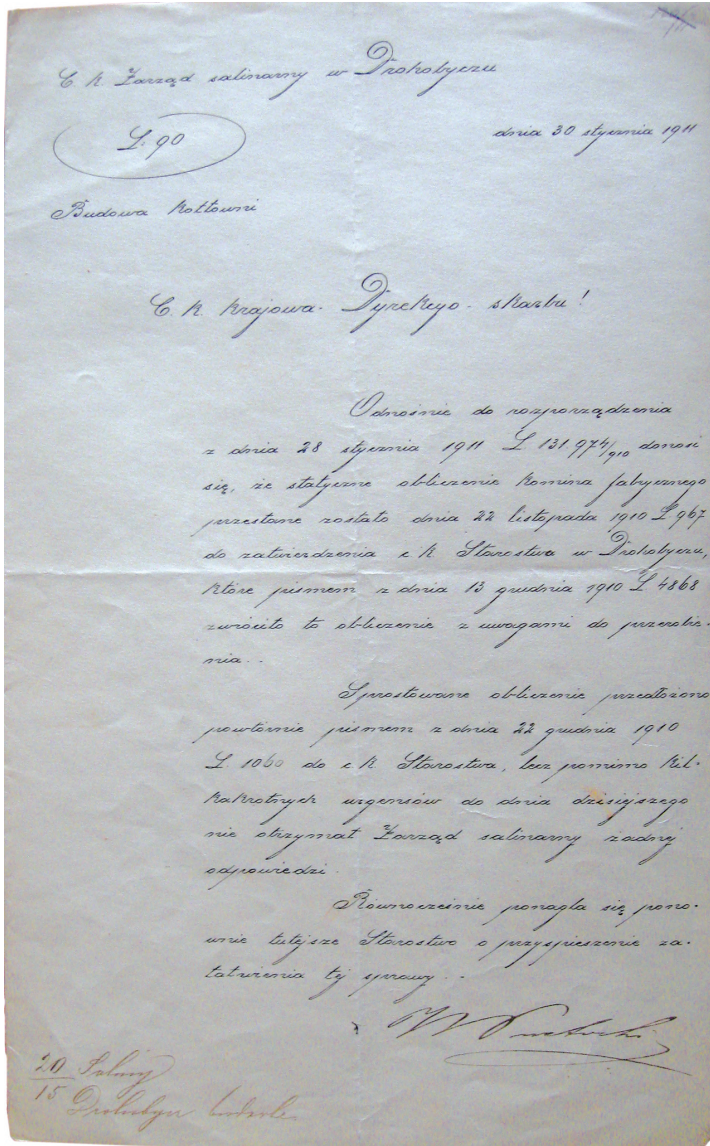 C. k. Zarząd salinarny w Drohobyczu
L. 90
dnia 30 stycznia 1911
Budowa kotłowni
C. k. krajowa Dyrekcyo skarbu!
Odnośnie do rozporządzenia
z dnia 28 stycznia 1911 L 131.974/910 donosi
się, że statyczne obliczenie komina fabrycznego
przesłane zostało dnia 22 listopada 1910 L 967
do zatwierdzenia c. k Starostwa w Drohobyczu,
które pismem z dnia 13 grudnia 1910 L 4868
zwróciło to obliczenie z uwagami do przerobie-
nia.
Sprostowane obliczenie przedłożono
powtórnie pismem z dnia 22 grudnia 1910
L. 1060 do c. k. Starostwa, lecz pomimo kil-
kakrotnych urgensów do dnia dzisiejszego
nie otrzymał Zarząd salinarny żadnej
odpowiedzi.
Równocześnie ponagla się pono-
wnie tutejsze Starostwo o przyspieszenie za-
łatwienia tej sprawy.
20
15
Saliny
Drohobycz